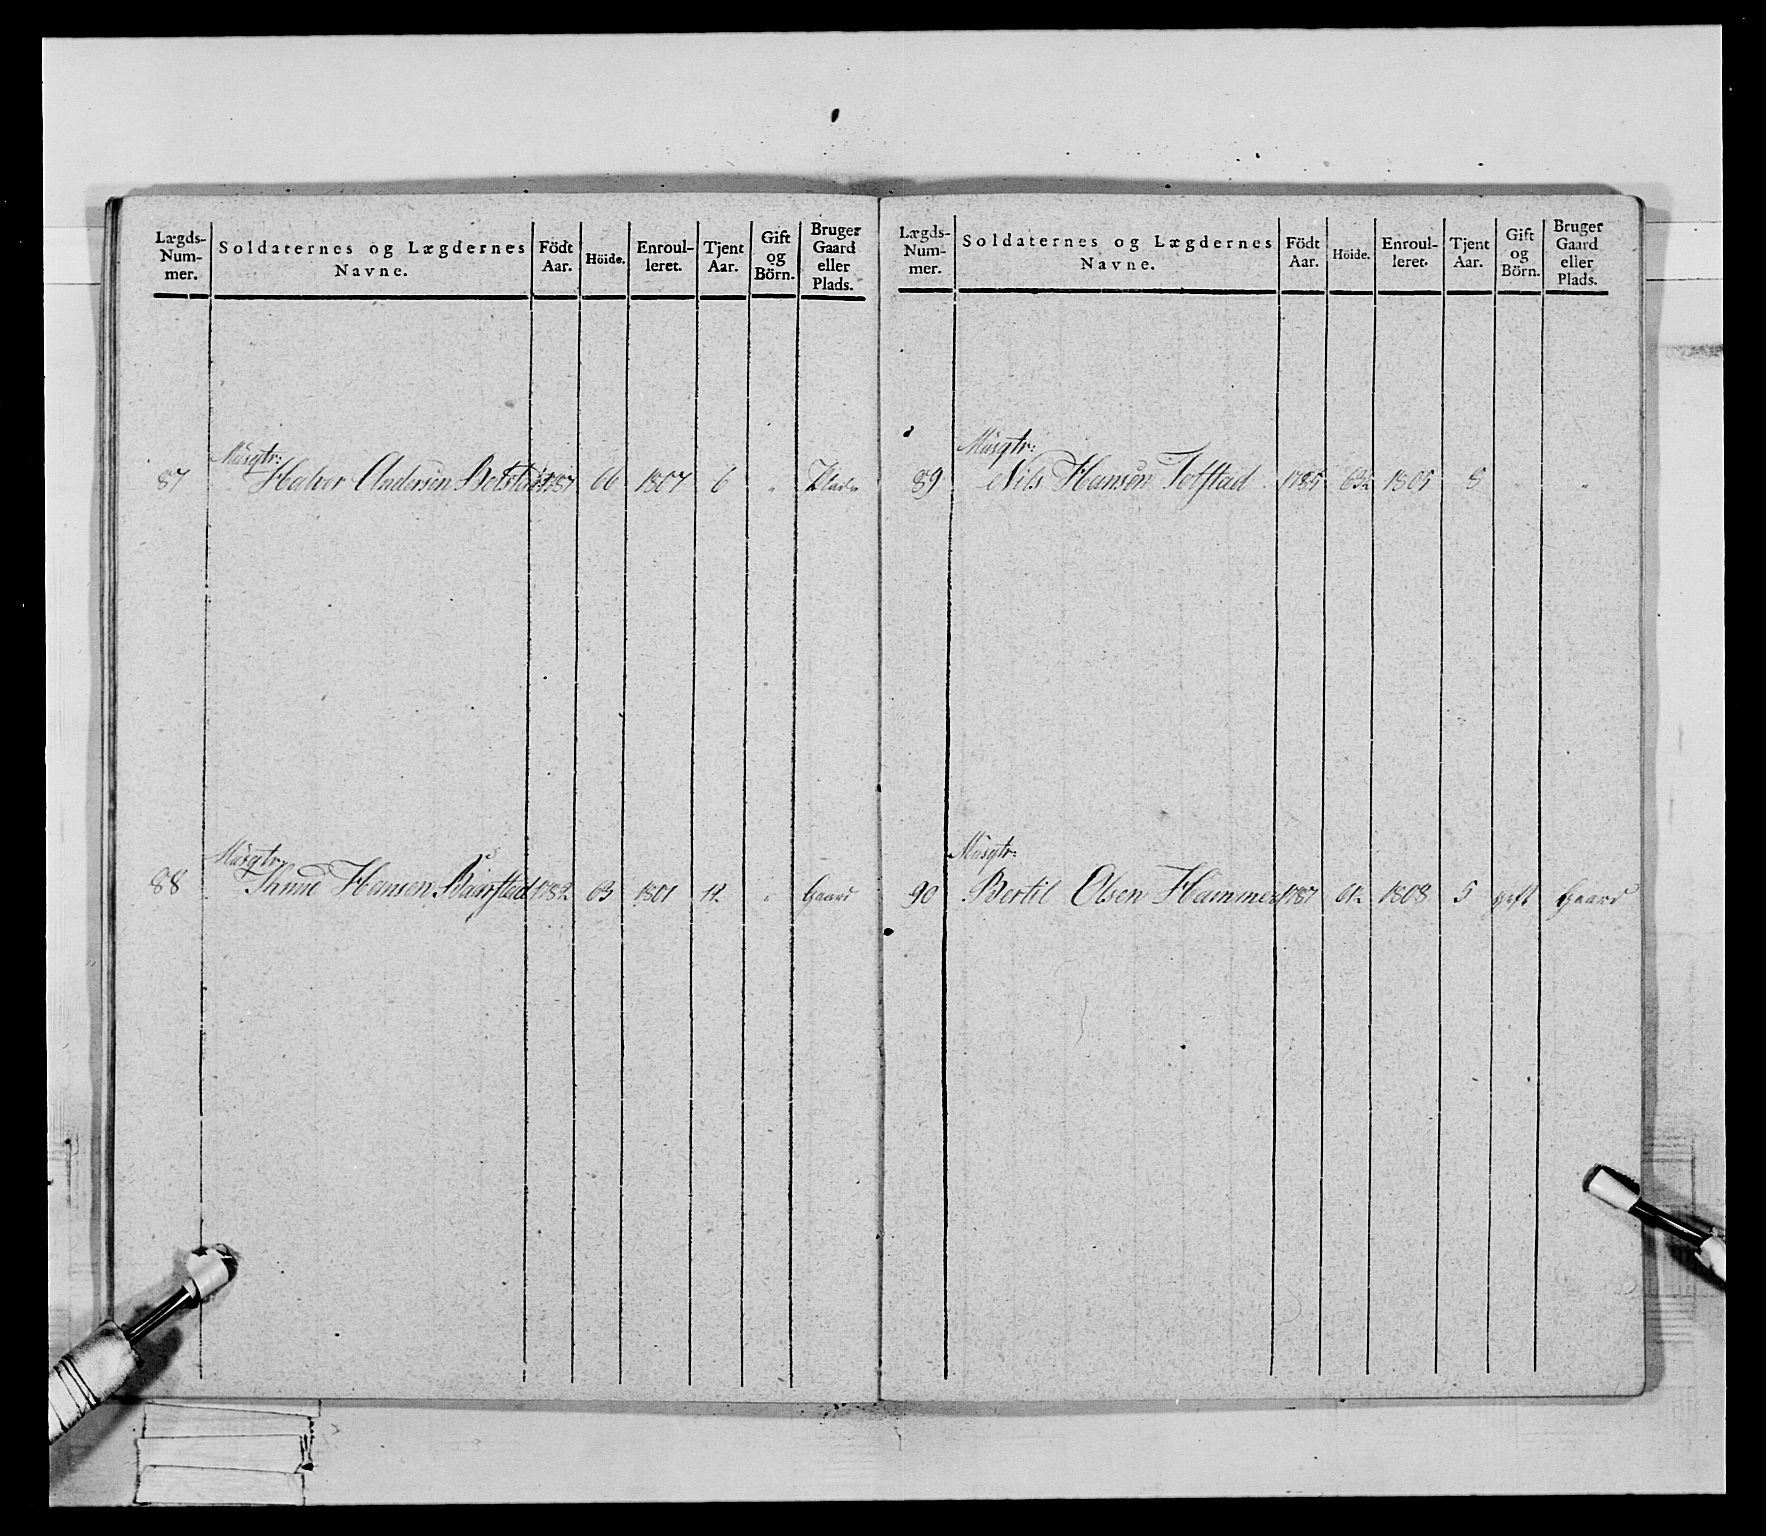 Lægds-Num-mer. Soldaternes og Lægdernes Navne. Födt Aar. Höide. Enroul-leret. Tjent Aar. Gift og Börn. Bruger Gaard eller Plads.
Musqtr:
87 Halvor Andersen 1787 66 1807 6 " Plads
Musqtr:
88 Hansen 1782 63 1801 12 " Gaard
Lægds-Num-mer. Soldaternes og Lægdernes Navne. Födt Aar. Höide. Enroul-leret. Tjent Aar. Gift og Börn. Bruger Gaard eller Plads.
Musqtr:
89 Nils Hansen Tofstad 1785 1805 8 " "
Musqtr:
90 Bertil Olsen Hammer 1787 1808 5 gift Gaard